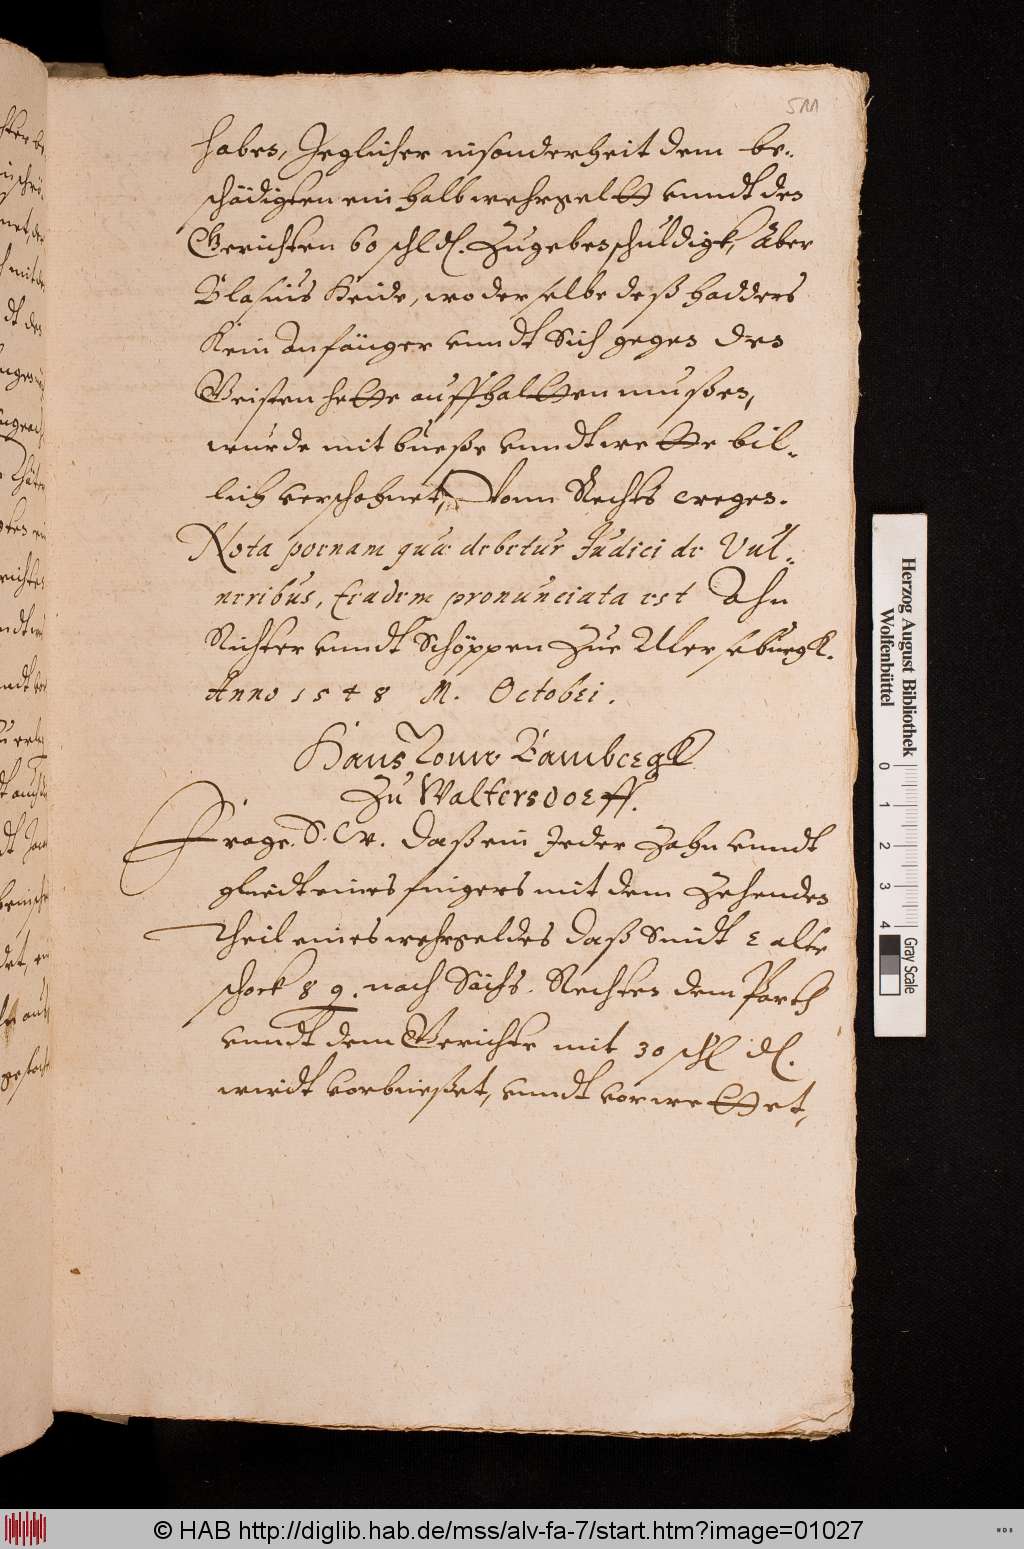 511
haben, Jeglicher insonderheit dem be-
schädigten ein halb wehrgeltt vnndt den
Gerichten 60 schl dl. Zugeben schuldigk, Aber
Blasius Heide, wo der selbe deß hadders
Kein anfänger vnndt Sich gegen den
Geisten hette auffhaltten mußen,
würde mit bueße vnndt wette bil-
lich verschohnet, Vonn Rechts wegen.
Nota poenam quae debetur Judici de Vul-
neribus, Eradem pronunciata est Ahn
Richter vnndt Schöppen Zue Mersebuegk.
Anno 1548 M. Octobri.
Hans Vonn Bambergk
Zu Waltersdorff.
Frage. D. Cr. Daß ein Jeder Zahn vnndt
gliedt eines fingers mit dem Zehenden
Theil eines wehrgeldes daß Sindt 2 alte
schock 8 g. nach Sächs. Rechten dem Parth
vnndt dem Gerichte mit 30 schl dl.
wirdt vorbueßet, vnndt vorwettet,
Herzog August Bibliothek
Wolfenbüttel
0 1 2 3 4
Gray Scale
© HAB http://diglib.hab.de/mss/alv-fa-7/start.htm?image=01027